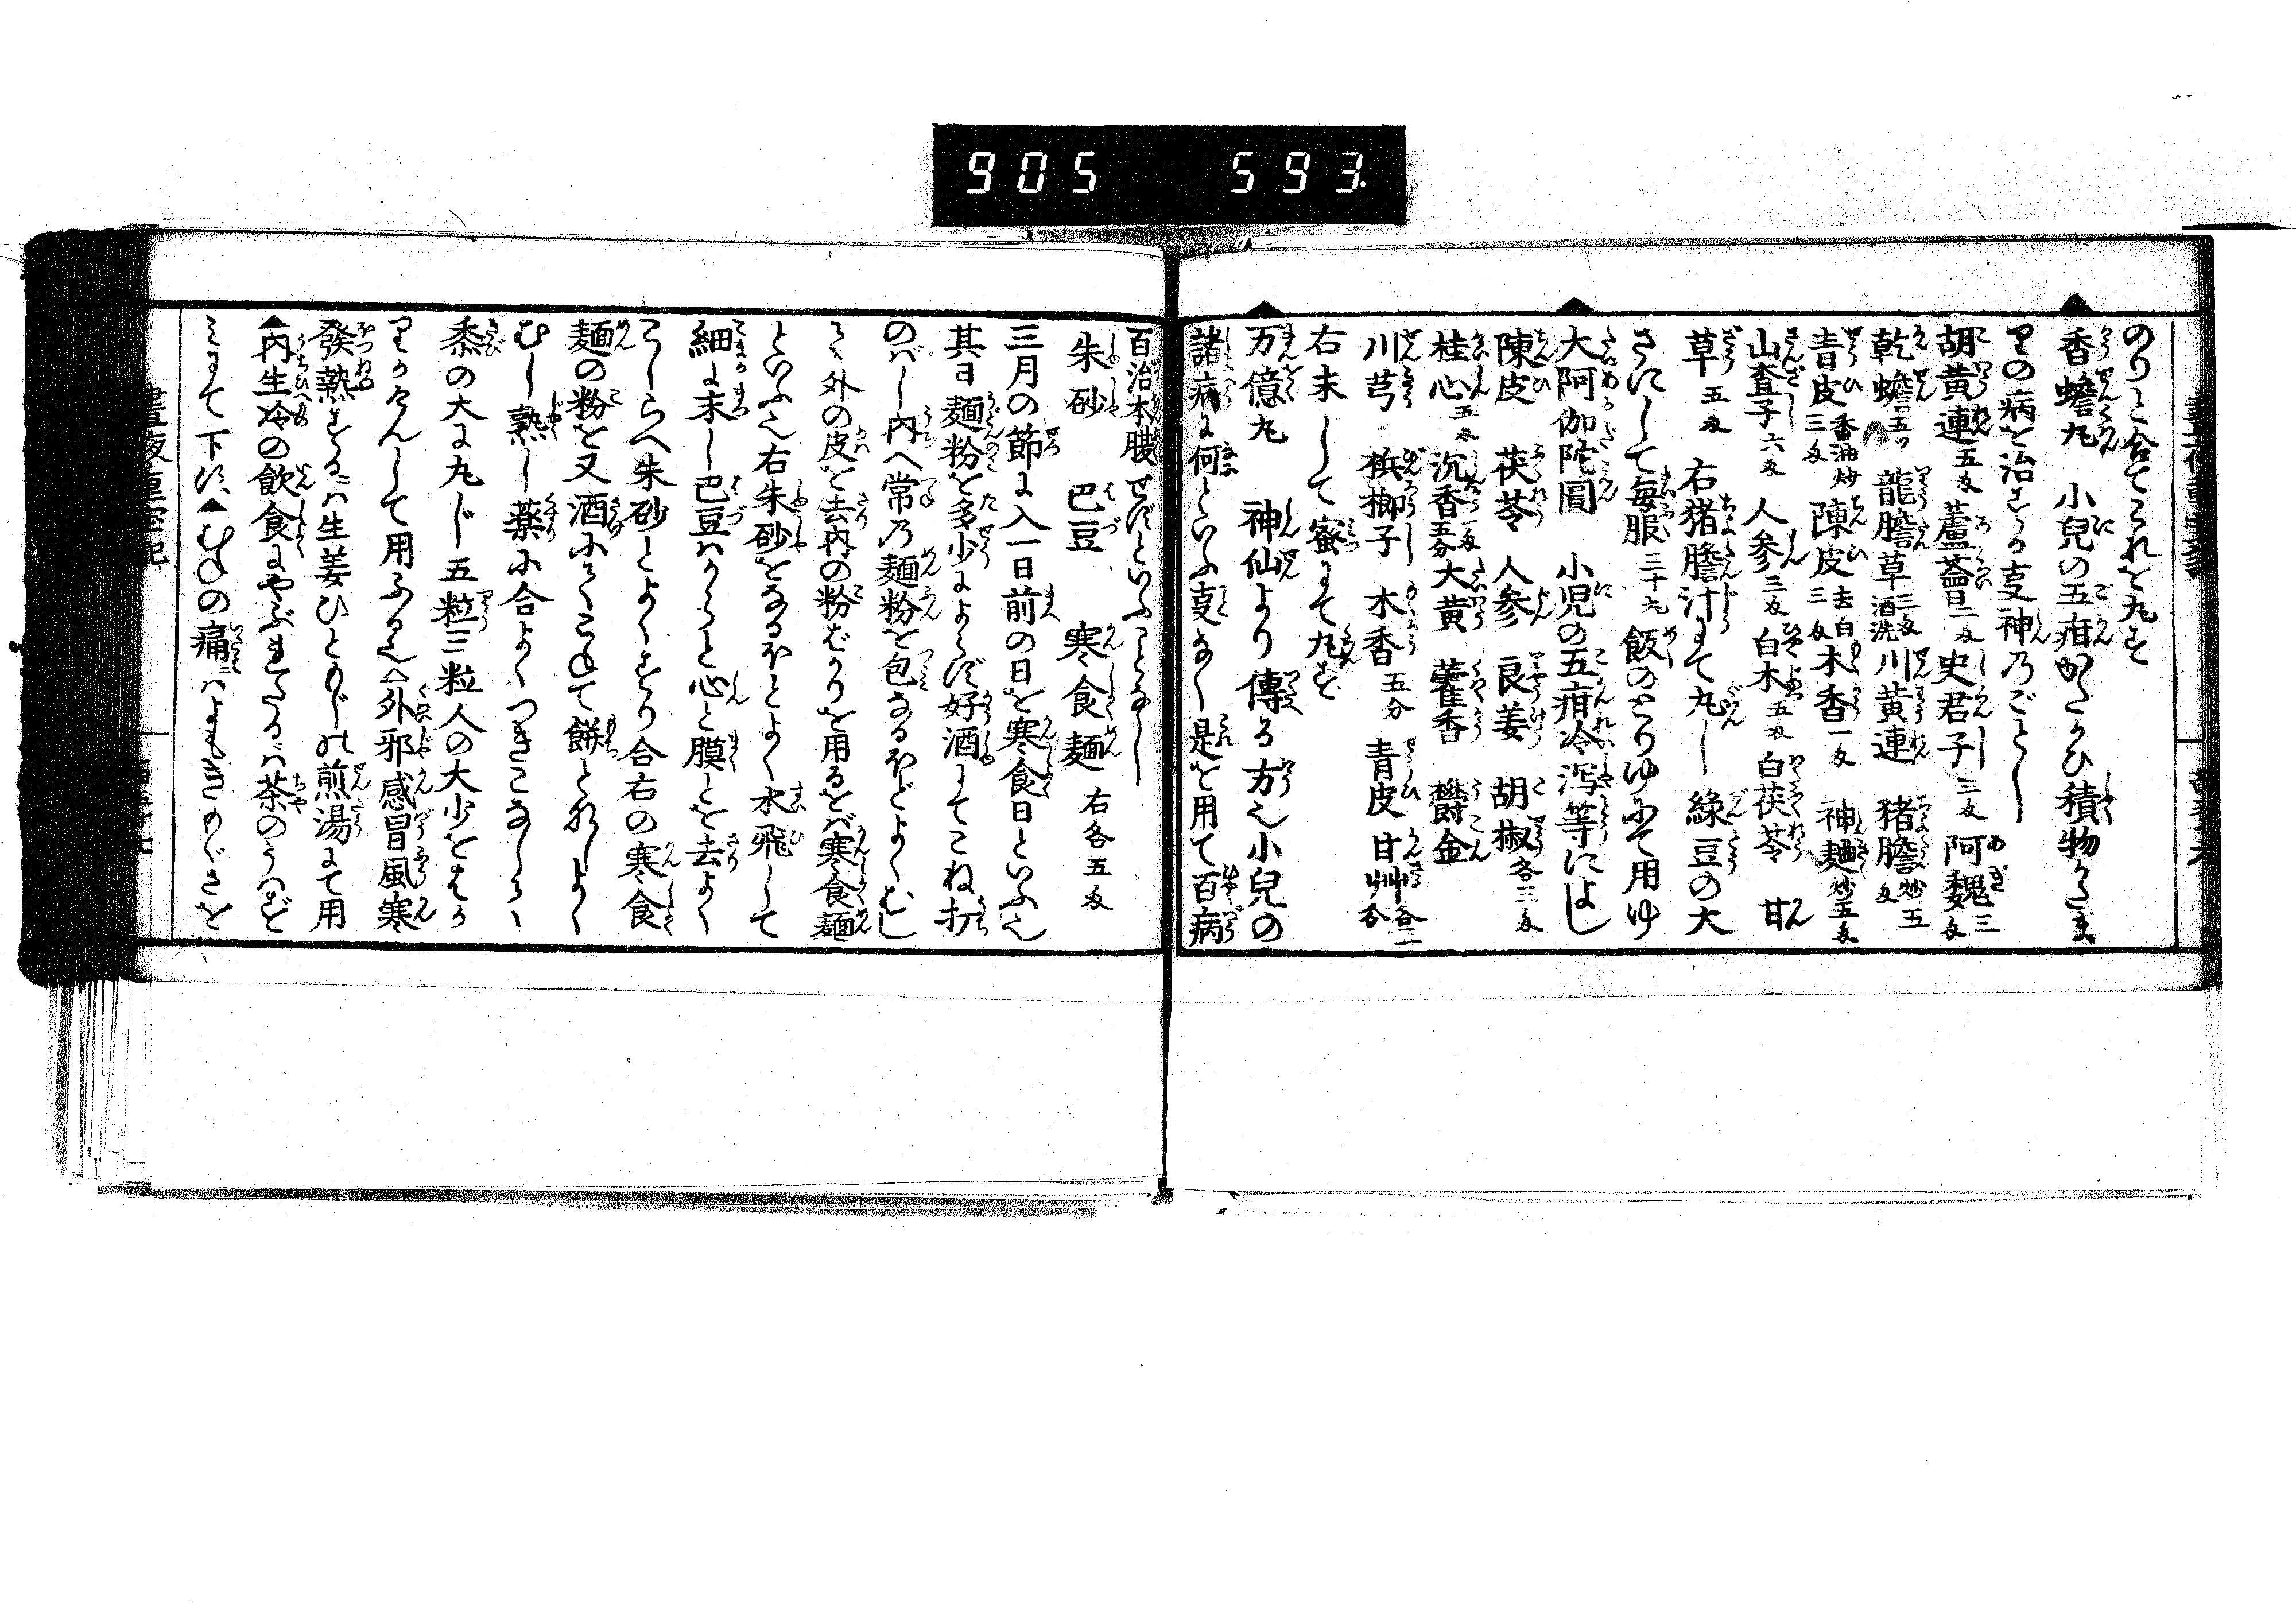 905 593.
のりと合てこれを丸ず
香蟾丸 小兒の五疳かたかひ積物かたま
りの病を治する支神乃ごとし
胡黄連五匁 蘆薈二匁 史君子三匁 阿魏三匁
乾蟾五ツ 龍膽草三匁酒洗 川黄連 猪膽炒五匁
青皮香油炒三匁 陳皮去白三匁 木香一匁 神麹炒五匁
山査子六匁 人参三匁 白木五匁 白茯苓 甘
草五匁 右猪膽汁にて丸し緑豆の大
さにして毎服三十丸飯のとりゆにて用ゆ
大阿伽陀圓 小児の五疳冷泻等によし
陳皮 茯苓 人参 良姜 胡椒各三匁
桂心五匁 沉香五分 大黄 藿香 欝金
川芎 梹榔子 木香五分 青皮 甘艸各二分
右末して蜜にて丸ず
万億丸 神仙より傳る方也小兒の
諸病に何といふ支なく是を用て百病
百治本腹せずといふことなし
朱砂 巴豆 寒食麺 右各五匁
三月の節に入一日前の日を寒食日といふ也
其日麺粉を多少によらず好酒にてこね打
のばし内へ常乃麺粉を包なるほどよくむし
て外の皮を去内の粉ばかりを用るをバ寒食麺
といふ也右朱砂をなるほどよく水飛して
細に末し巴豆ハからと心と膜とを去よく
こしらへ朱砂とよくすり合右の寒食
麺の粉を又酒にてこねて餅となしよく
むし熟し薬に合よくつきこなしろく
黍の大に丸じ五粒三粒人の大少をはか
りかんにして用ふる也△外邪感冒風寒
發熱するにハ生姜ひともじの煎湯にて用
▲内生冷の飲食にやぶれたるハ茶のうハずミ
ミにて下す▲むねの痛ミハよもきのくさを